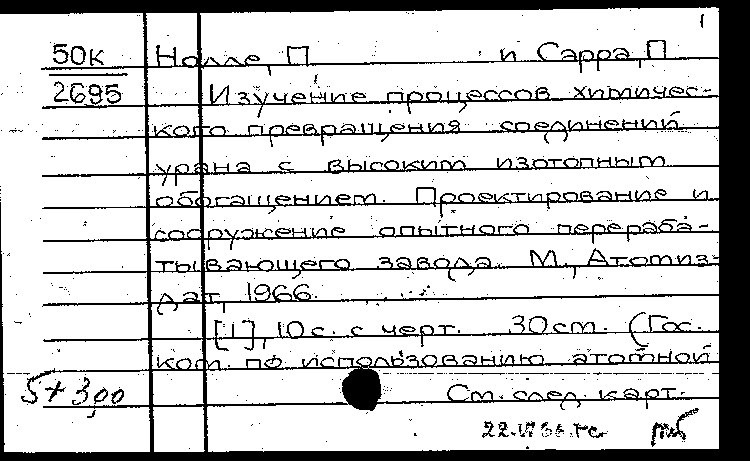 1
50к Нолле, П и Сарра, П
2695 Изучение процессов химичес-
кого превращения соединений
урана с высоким изотопным
обогащением. Проектирование и
сооружение опытного перераба-
тывающего завода. М., Атомиз-
дат, 1966.
[1], 10 с. с черт. 30 см. (Гос.
ком. по использованию атомной
5+3,00 См. след. карт.